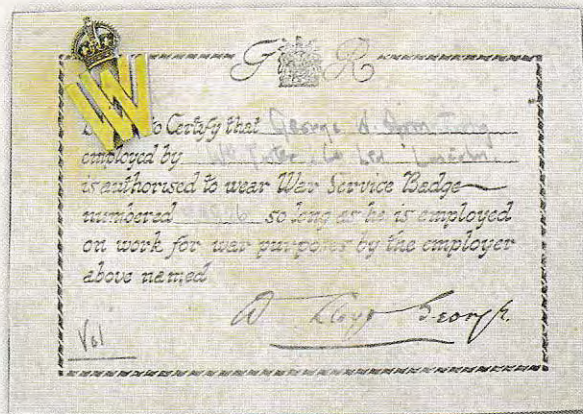 G R
to Certify that George W.
employed by Wm Foster & Co. Ltd Lincoln.
is authorised to wear War Service Badge
numbered so long as he is employed
on work for war purposes by the employer
above named
D Lloyd George.
Vol